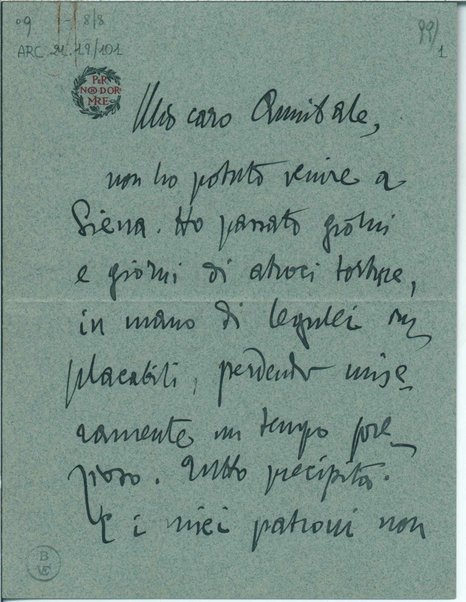 09 I - 8/8
ARC 21.19/101
99/
1
PER
NON DOR
MIRE
Mio caro Annibale,
non ho potuto venire a
Siena. Ho passato giorni
e giorni di atroci torture,
in mano di legulei im
placabili, perdendo mise
ramente un tempo pre-
zioso. Tutto precipita.
E i miei patroni non
B
VE